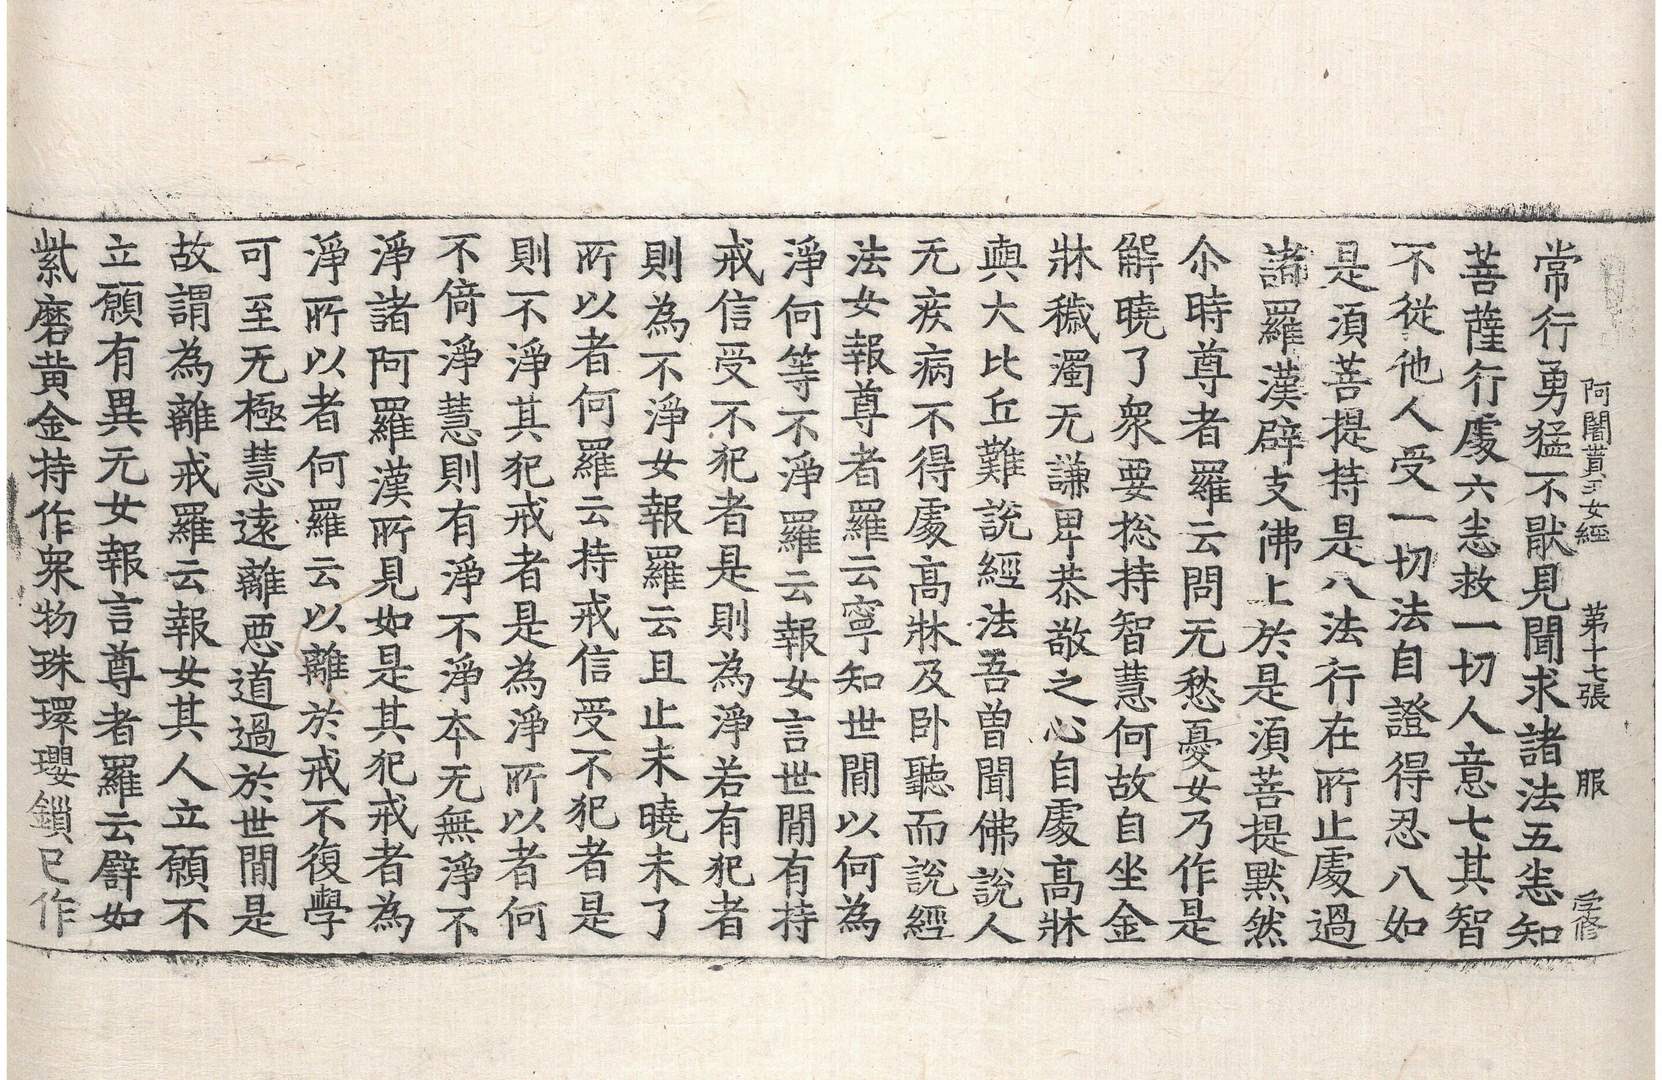 阿闍貰王女經　第十七張　服　孝修
常行勇猛不猒見聞求諸法五恚知
菩薩行處六恚救一切人意七其智
不從他人受一切法自證得忍八如
是湏菩提持是八法行在所止處過
諸羅漢辟支佛上於是湏菩提黙然
尒時尊者羅云問无愁憂女乃作是
解曉了衆要捴持智慧何故自坐金
牀穢濁无謙卑恭敬之心自處高牀
與大比丘難說經法吾曽聞佛說人
无疾病不得處高牀及卧聽而說經
法女報尊者羅云寧知世閒以何為
淨何等不淨羅云報女言世閒有持
戒信受不犯者是則為淨若有犯者
則為不淨女報羅云且止未曉未了
所以者何羅云持戒信受不犯者是
則不淨其犯戒者是為淨所以者何
不倚淨慧則有淨不淨本无無淨不
淨諸阿羅漢所見如是其犯戒者為
淨所以者何羅云以離於戒不復學
可至无極慧遠離惡道過於世閒是
故謂為離戒羅云報女其人立願不
立願有異无女報言尊者羅云譬如
紫磨黄金持作衆物珠環瓔鎖已作